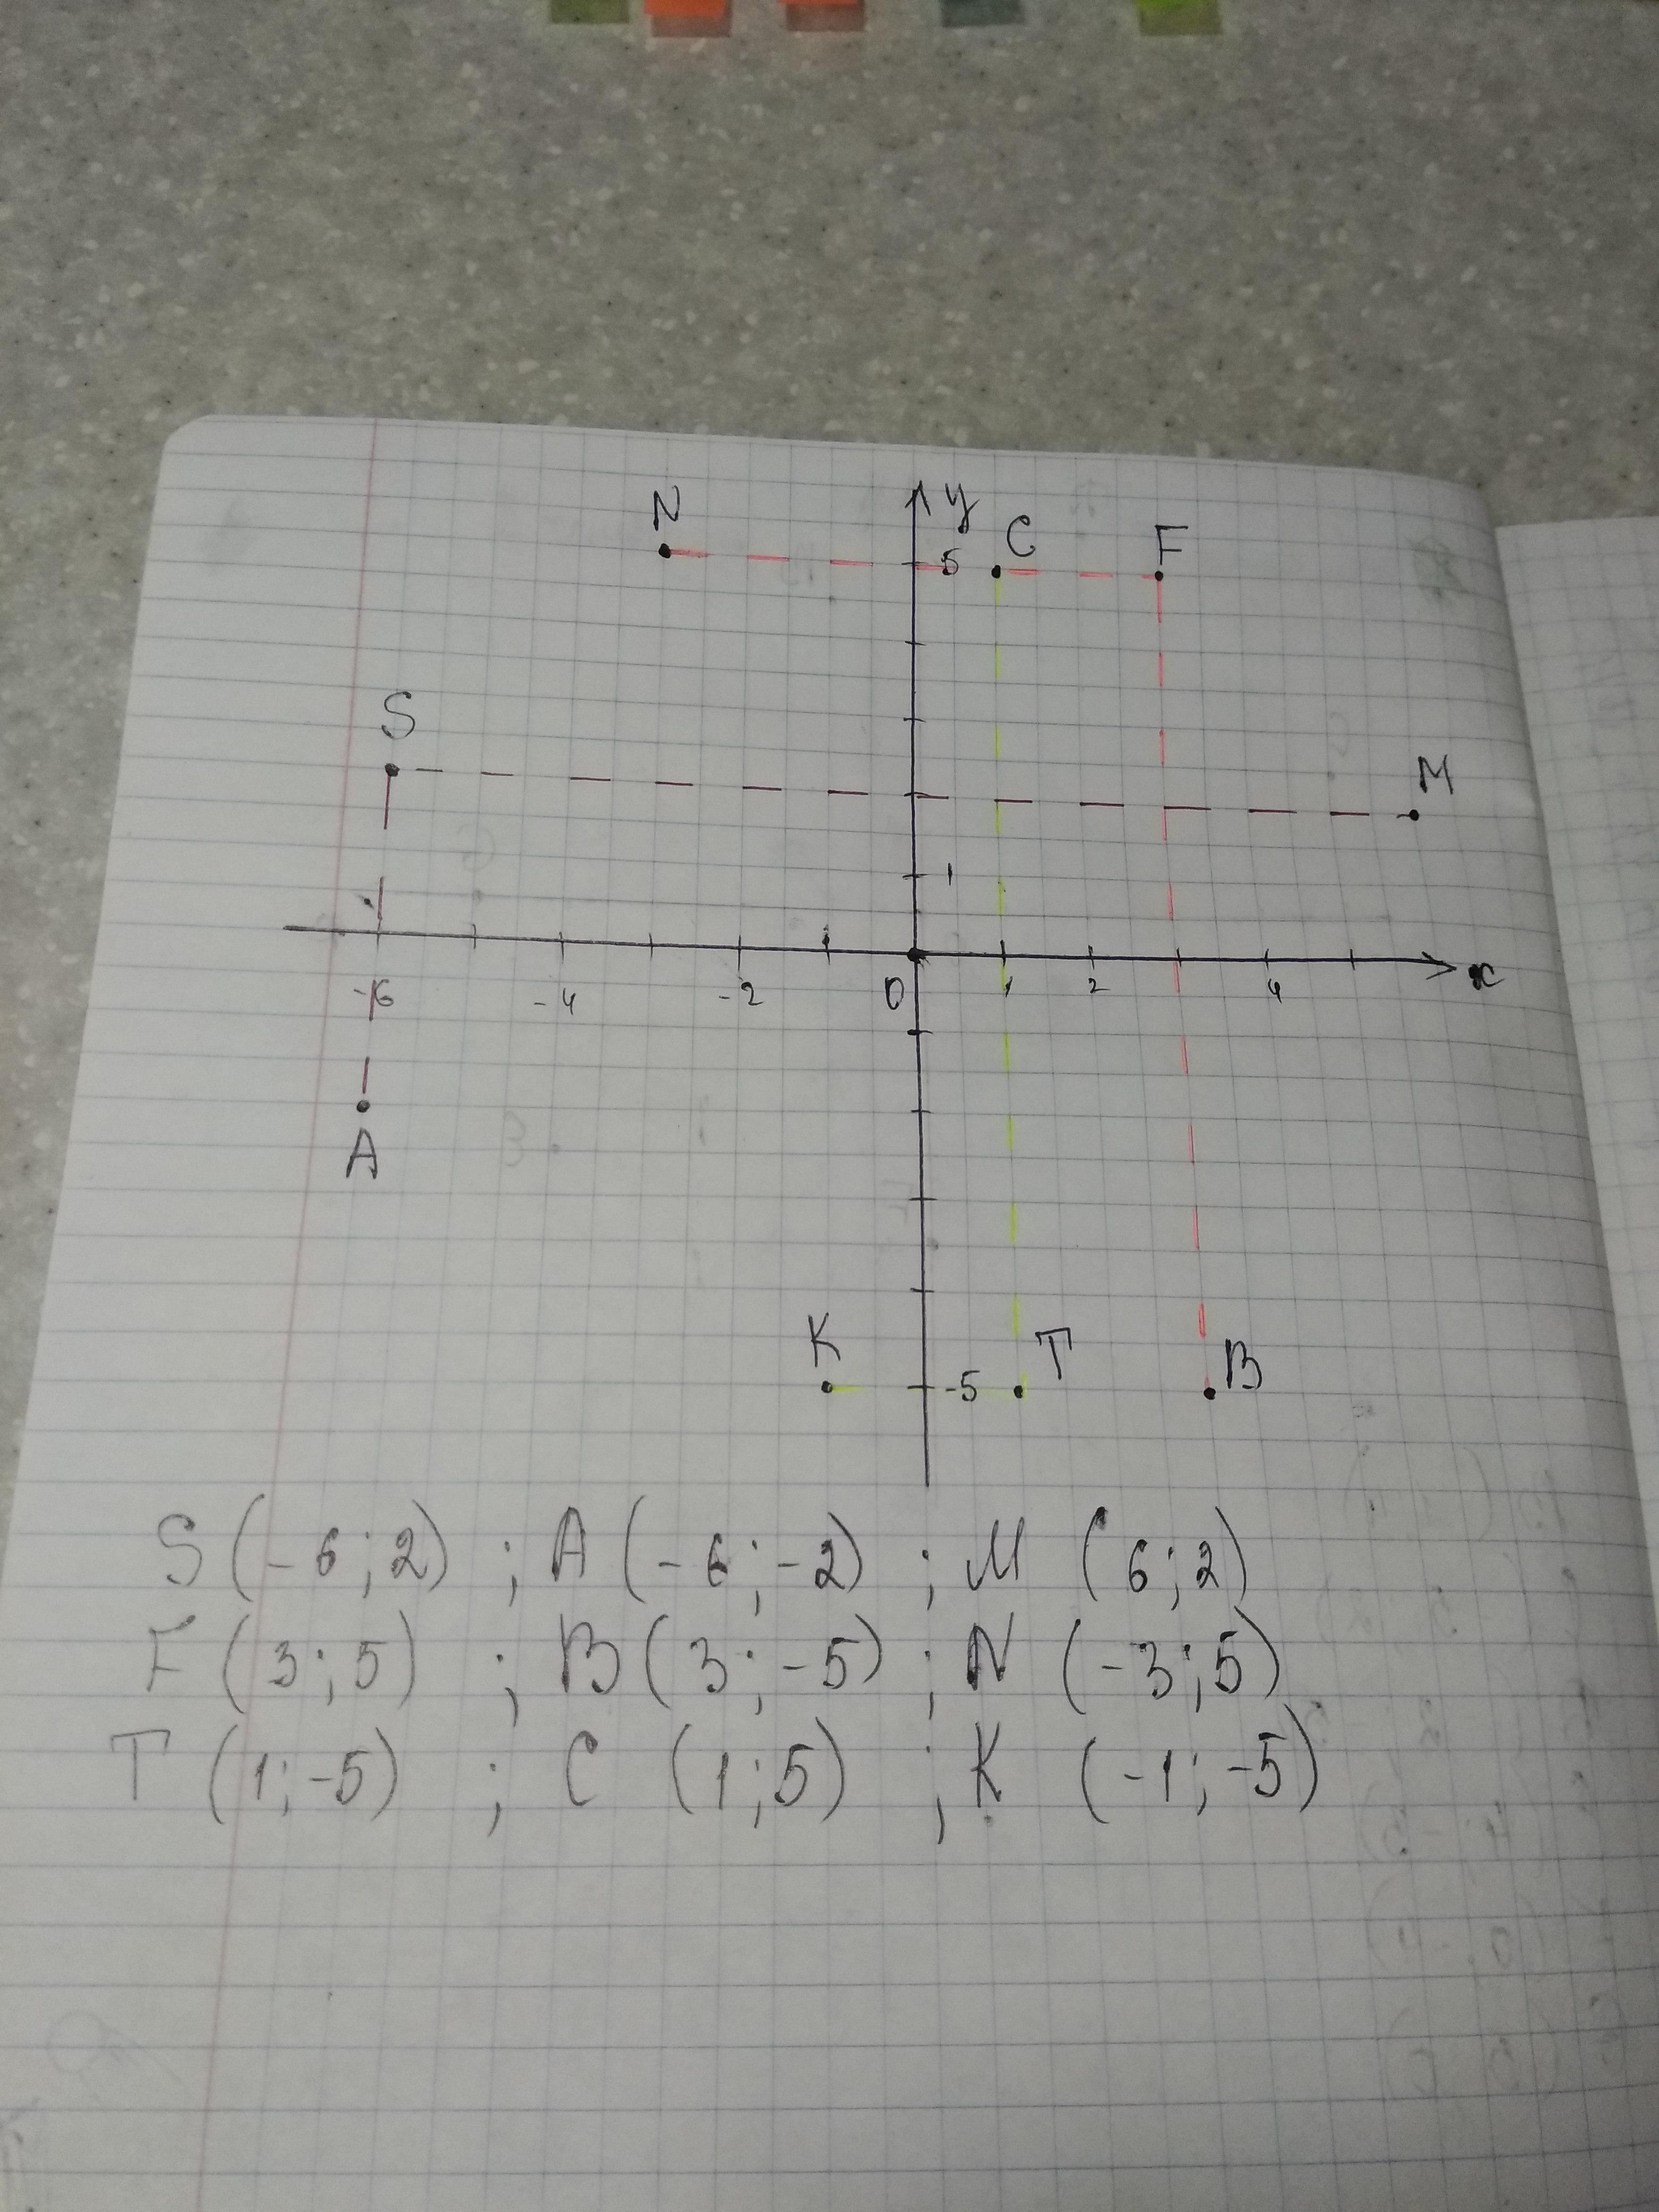 N
y
5
C
F
S
M
1
-6
-4
-2
0
1
2
4
x
A
K
-5
T
B
S (-6;2) ; A (-6;-2) ; M (6;2)
F (3;5) ; B (3;-5) ; N (-3;5)
T (1;-5) ; C (1;5) ; K (-1;-5)